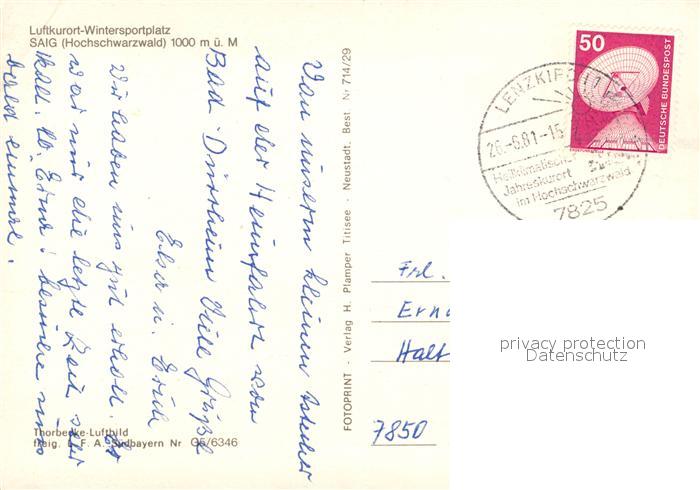 Luftkurort-Wintersportplatz
SAIG (Hochschwarzwald) 1000 m ü. M
Von unserm kleinen
auf der Heimfahrt von
Bad-Dürrheim viele Grüße
Elsa u. Erich
Wir haben uns gut erholt. Es
war nur die letzte Zeit sehr
kalt. Lb. Erna! besuche uns
bald einmal.
Thorbecke-Luftbild
freig. L. F. A. Südbayern Nr G5/6346
FOTOPRINT - Verlag H. Plamper Titisee - Neustadt, Best Nr 714/29
50
DEUTSCHE BUNDESPOST
LENZKIRCH 1
26.-6.81-15
Heilklimatischer
Jahreskurort
im Hochschwarzwald
7825
Frl.
Ern
Halt
7850
privacy protection
Datenschutz